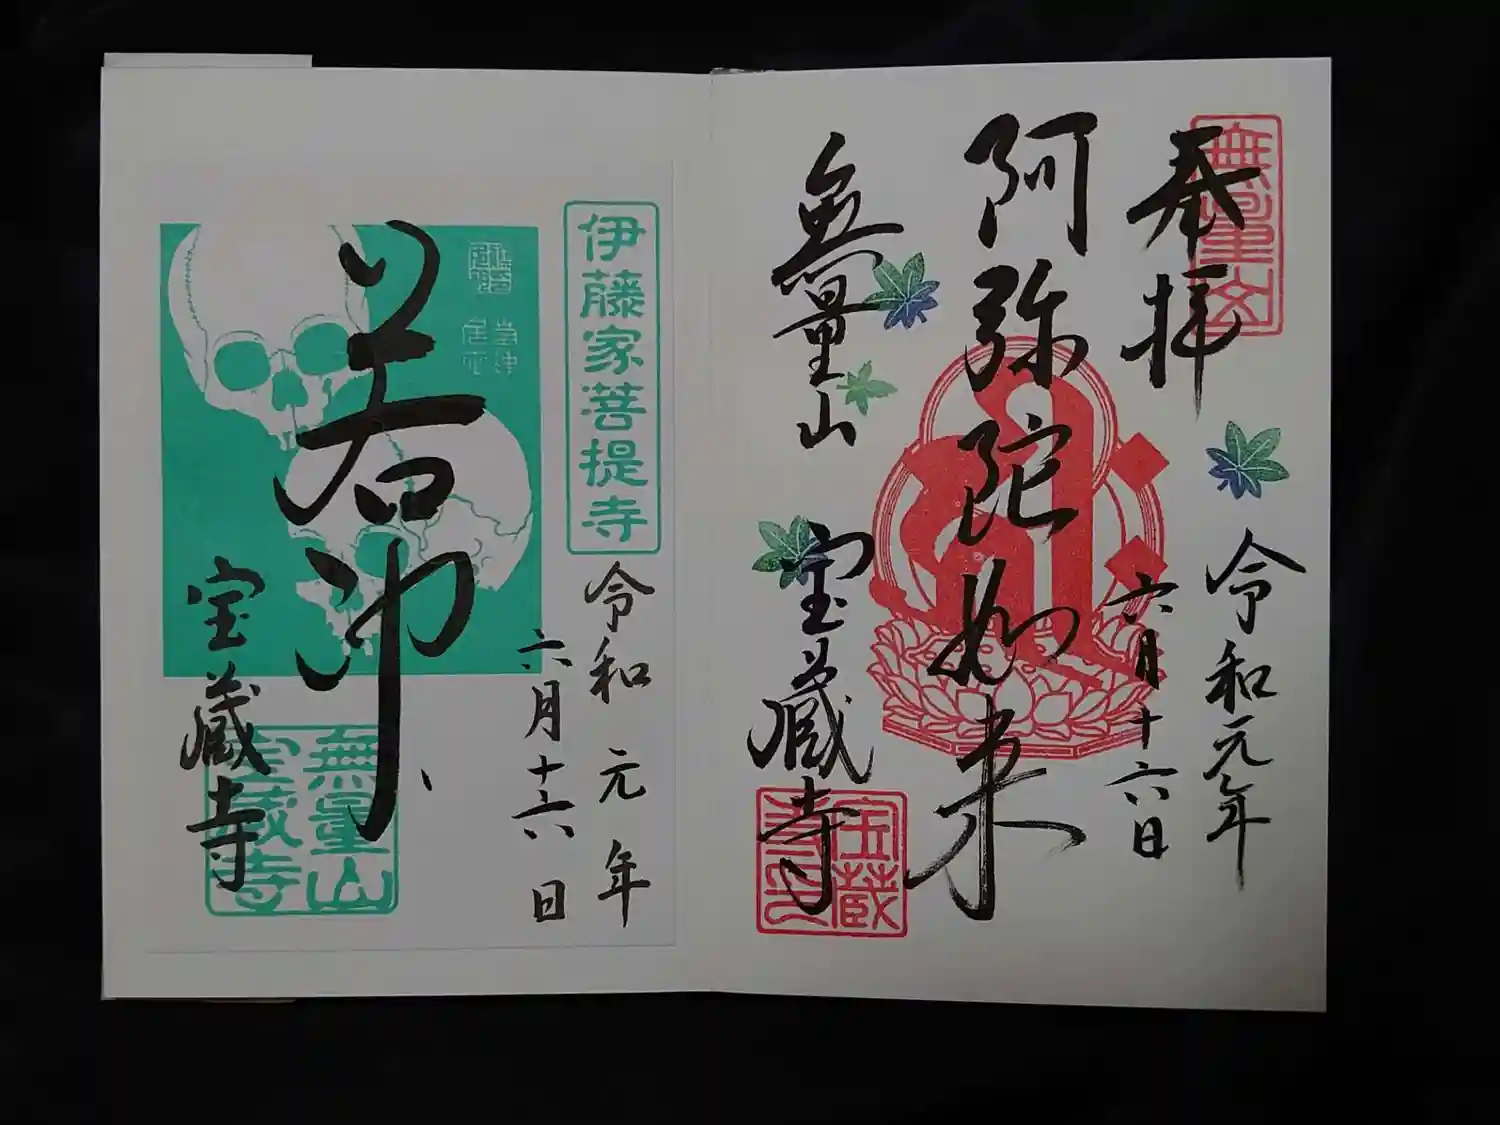 奉拝
無量山
令和元年
六月十六日
阿弥陀如来
無量山
宝蔵寺
伊藤家菩提寺
令和元年
六月十六日
若冲
宝蔵寺
無量山
宝蔵寺